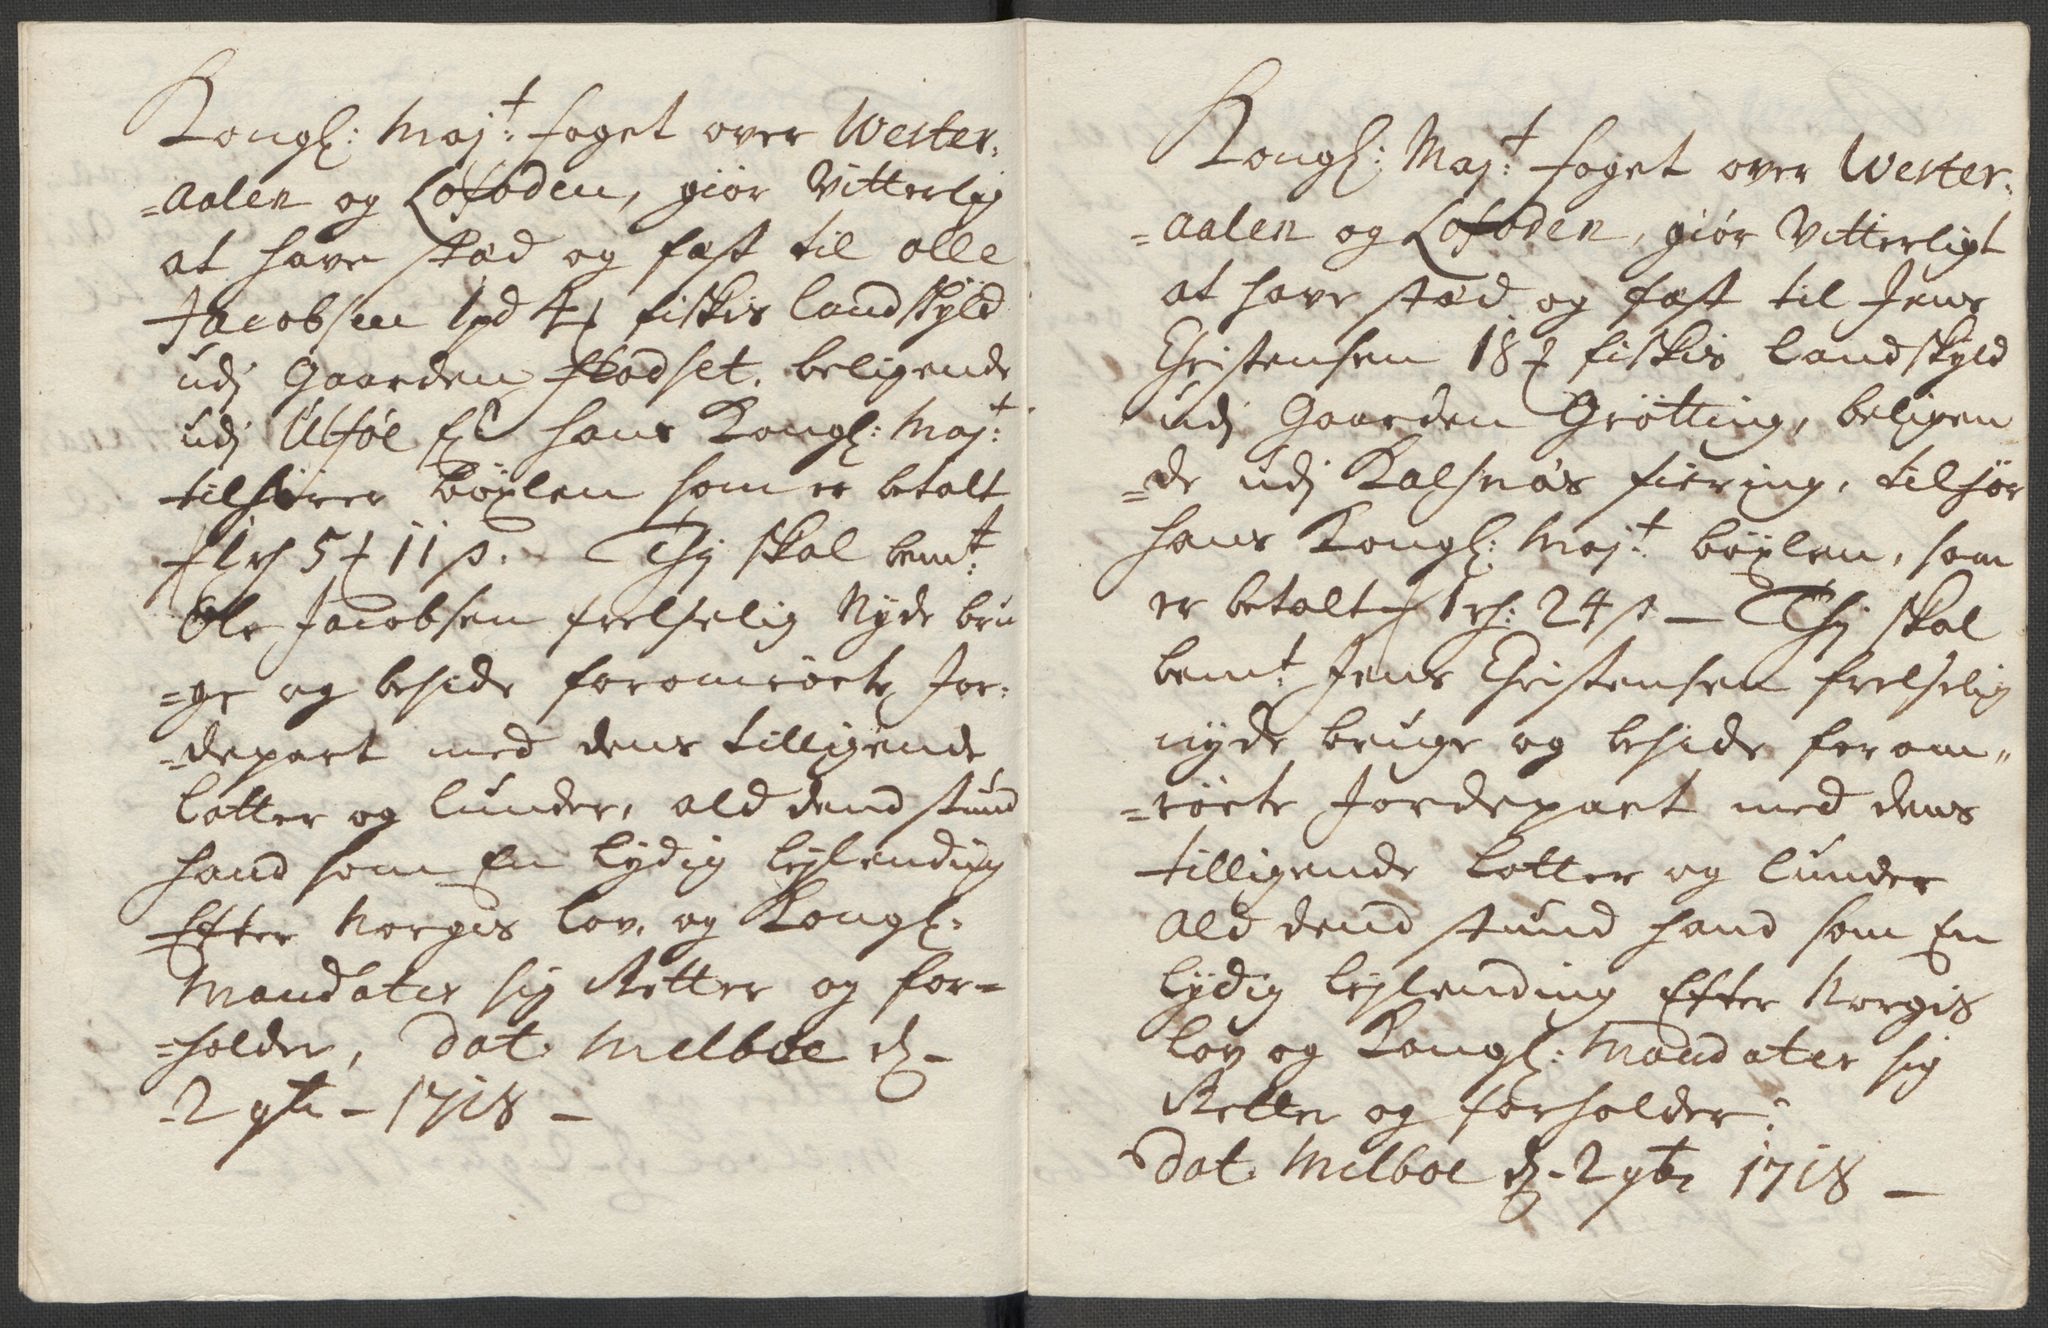 Kongl: Maj:t foget over Wester,
=aalen og Lofoden, giør Vitterlig
at have sted og fæst til olle
Jacobsen 1 pd 4 # fiskis landskyld
udj Gaarden Stodset, beligende
udj Ulføe Fl hans Kongl: Maj:t
tilhører bøxlen som er betalt
1 rd 5 # 11 s. Thj skal bem:t
Ole Jacobsen frelselig Nyde bru
=ge og beside foromrørte Jor,
=depart med dens tilligende
lotter og lunder, ald dend stund
hand som En lydig lejlending
Efter Norgis lov, og Kongl:
Mandater sig Retter og for=
=holder, Dat. Melboe d.
2 9br - 1718 -
Kongl: Maj:t foget over Wester,
=aalen og Lofoden, giør Vitterligt
at have sted og fæst til Jens
Christensen 18 # fiskis landskyld
udj Gaarden Grøtting, beligen
=de udj Kalsnæs fiering, tilhør
hans Kongl: Maj:t bøxlen, som
er betalt 1 rd: 24 s - Thj skal
bem:t Jens Christensen frelselig
nyde bruge og beside forom"
=rørte Jordepart med dens
tilligende lotter og lunder
ald dend stund hand som En
lydig lejlending Efter Norgis
lov og Kongl: Mandater sig
Retter og forholder:
Dat. Melboe d. 2 9br 1718 -